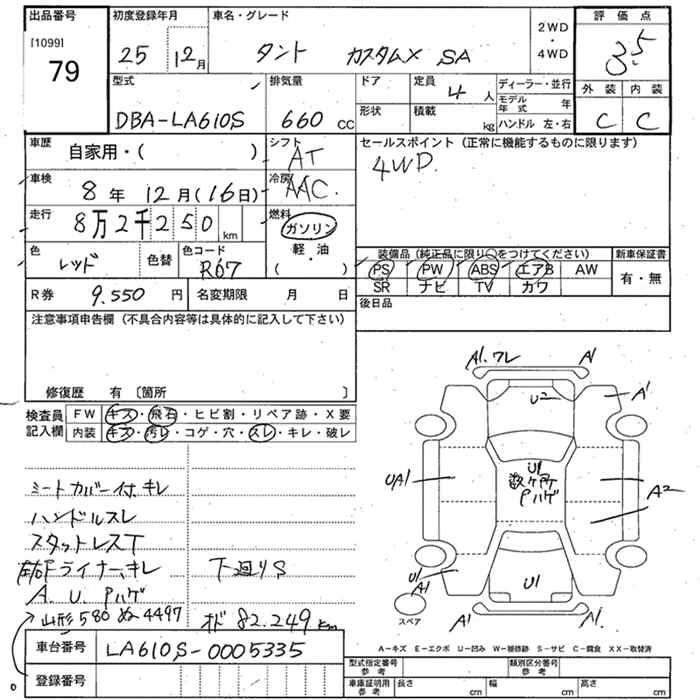 出品番号 初度登録年月 車名・グレード 2WD・4WD 評価点
[1099] 79 25 12月 タント カスタムX SA 3.5
型式 排気量 ドア 定員 4人 ディーラー・並行 外装 内装
DBA-LA610S 660cc 形状 積載 kg モデル年式 年 C C
ハンドル 左・右
車歴 自家用・( ) シフト AT セールスポイント(正常に機能するものに限ります)
4WD
車検 8年 12月(16日) 冷房 AAC.
走行 8万2千250km 燃料 ガソリン・軽油
( )
色 レッド 色替 色コード R67 装備品(純正品に限り○をつけてください) 新車保証書
PS PW ABS エアB AW 有・無
SR ナビ TV カワ
R券 9.550円 名変期限 月 日 後日品
注意事項申告欄(不具合内容等は具体的に記入して下さい)
修復歴 有〔箇所 〕
検査員記入欄 FW キズ・飛石・ヒビ割・リペア跡・X要
内装 キズ・汚レ・コゲ・穴・スレ・キレ・破レ
A1.ワレ A1
U2 A1
UA1 U1 数ヶ所 Pハゲ A2
U1 A1 U1
A1 A1.
スペア
シートカバー付.キレ
ハンドルスレ
スタットレスT
左右Fライナー、キレ 下廻りS
A.U.Pハゲ
山形580ぬ-4497 オド82.249km
A-キズ E-エクボ U-凹み W-補修跡 S-サビ C-腐食 XX-取替済
車台番号 LA610S-0005335
登録番号
型式指定番号 参考 類別区分番号 参考
車庫証明用 参考 長さ cm 幅 cm 高さ cm